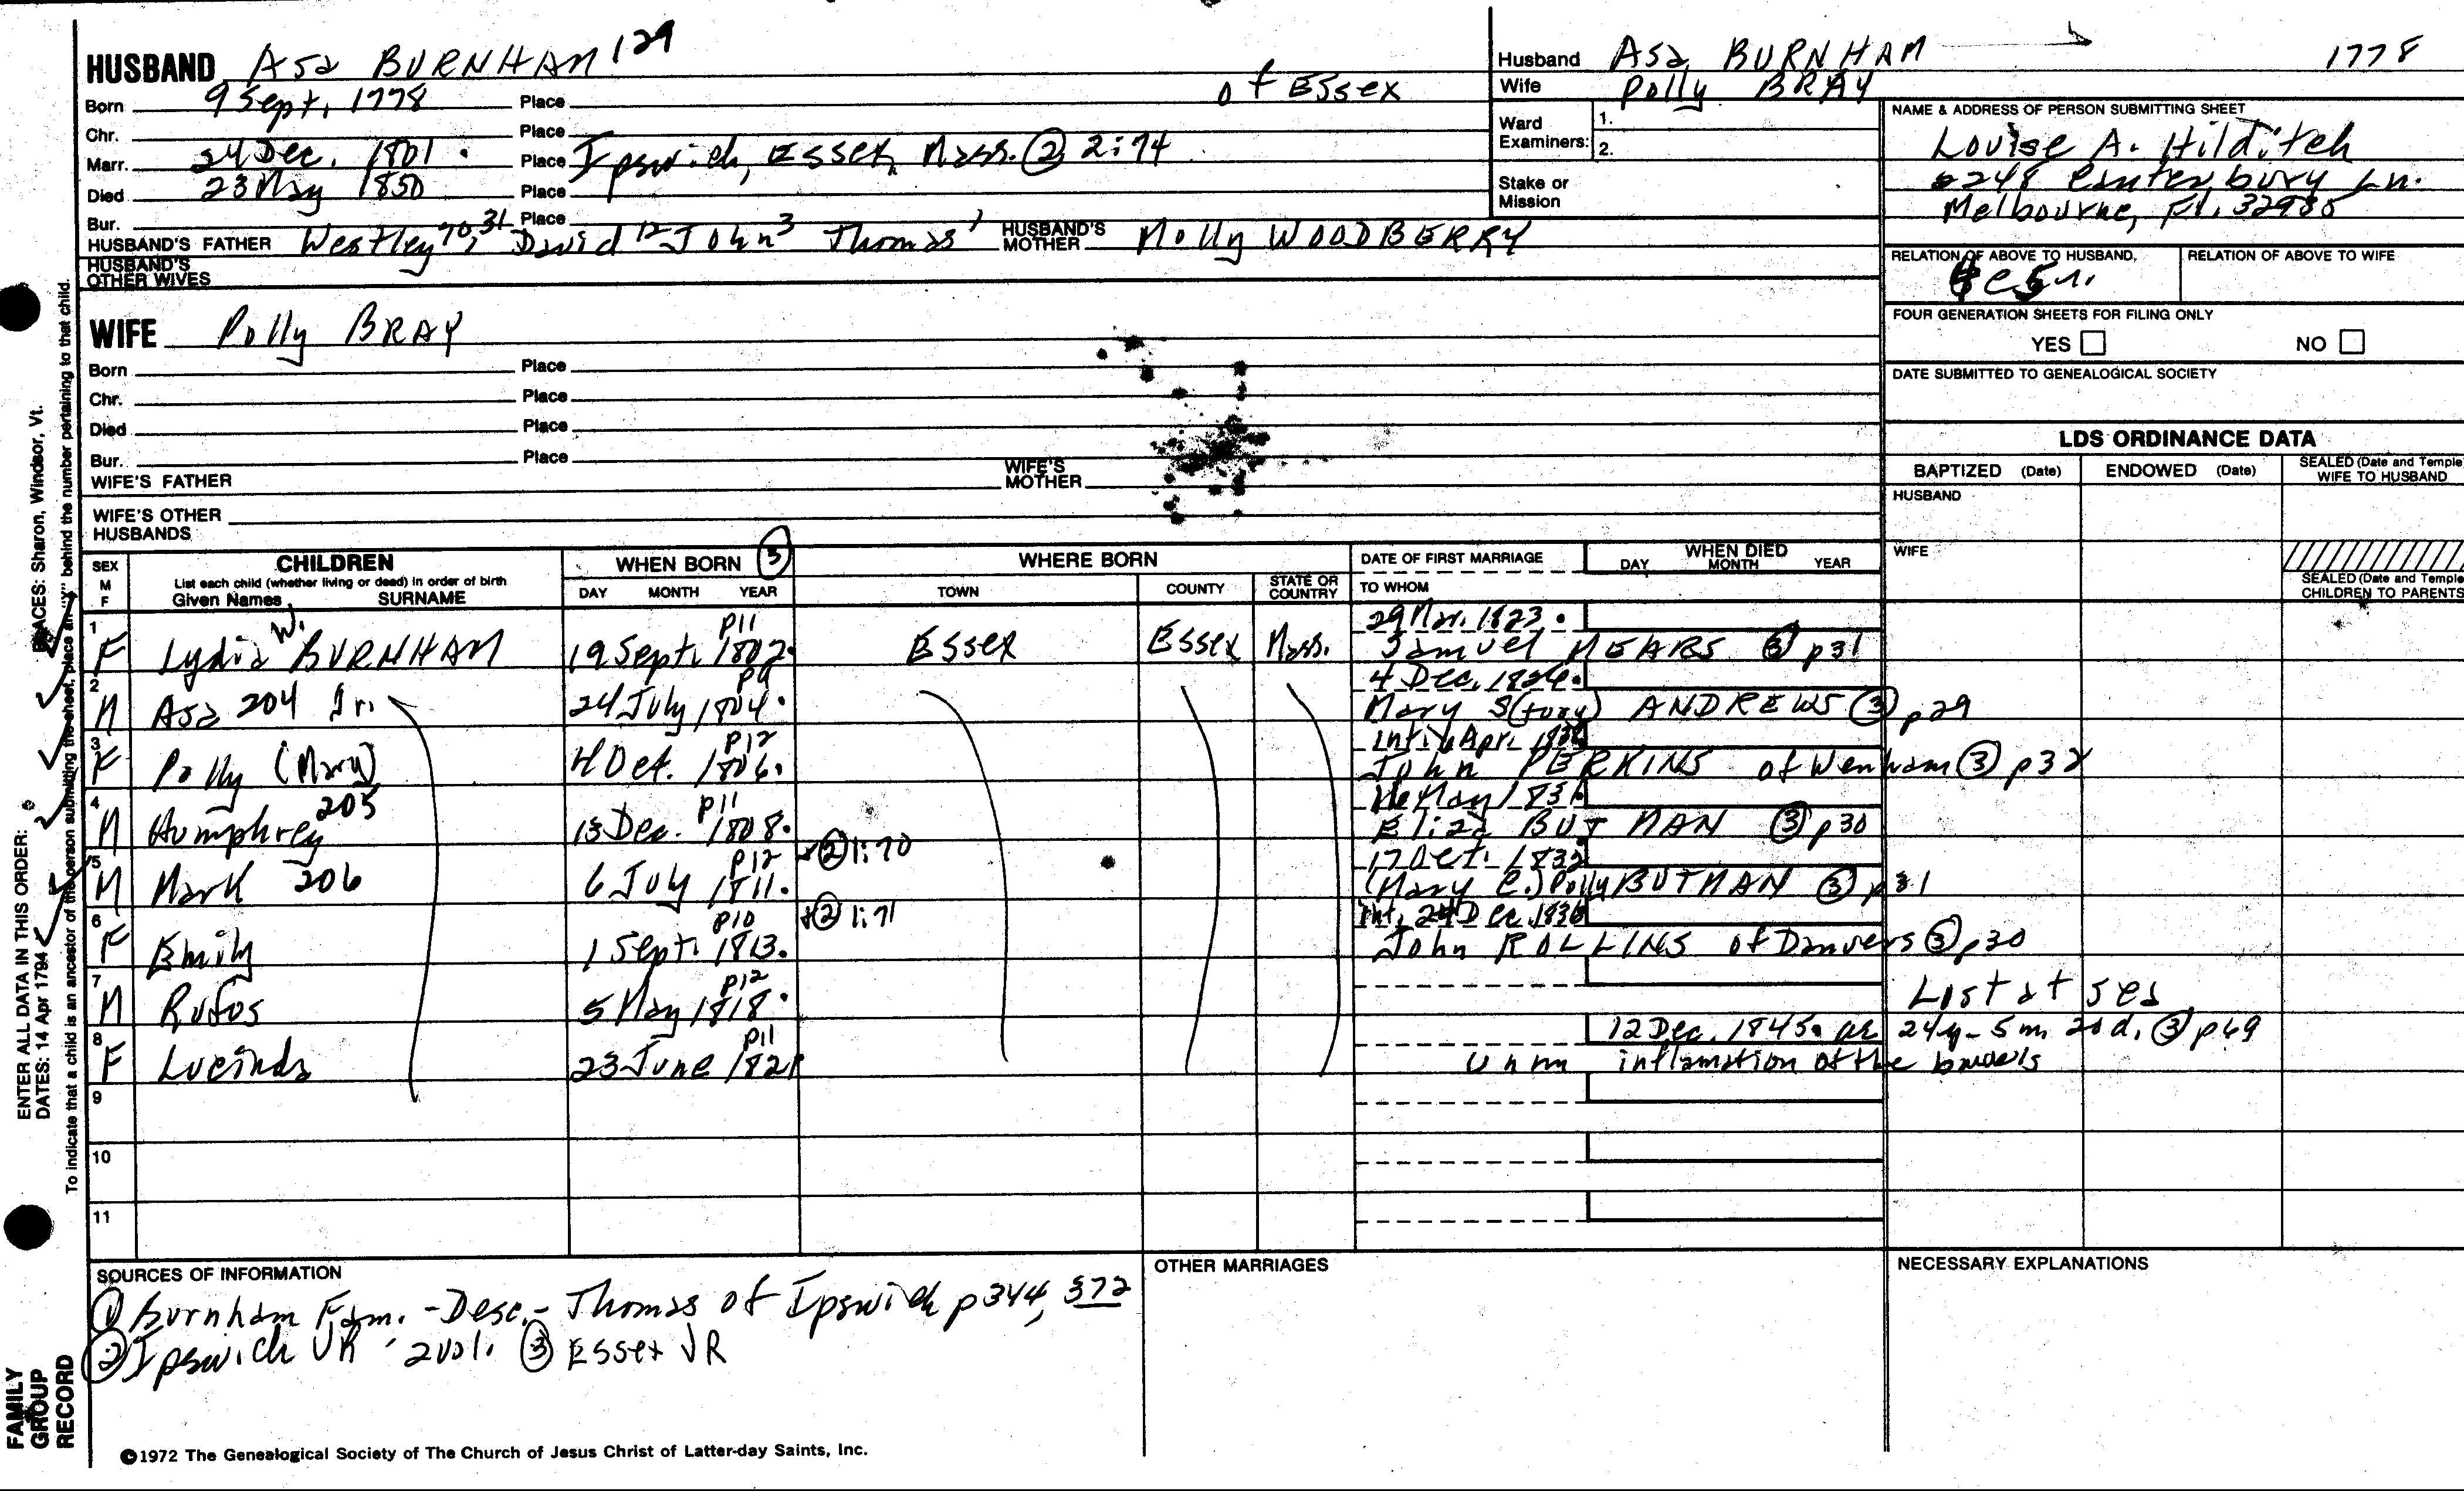 HUSBAND Asa BURNHAM 129
Born 9 Sept. 1778 Place of Essex
Chr. Place
Marr. 24 Dec. 1801. Place Ipswich, Essex, Mass. ② 2:74
Died 23 May 1850 Place
Bur. Place
HUSBAND'S FATHER Westley 70, 31 David 12 John 3 Thomas 1 HUSBAND'S MOTHER Molly WOODBERRY
HUSBAND'S OTHER WIVES
WIFE Polly BRAY
Born Place
Chr. Place
Died Place
Bur. Place
WIFE'S FATHER WIFE'S MOTHER
WIFE'S OTHER HUSBANDS
Husband Asa BURNHAM 1778
Wife Polly BRAY
Ward Examiners: 1. 2.
Stake or Mission
NAME & ADDRESS OF PERSON SUBMITTING SHEET
Louise A. Hilditch
2248 Canterbury Ln.
Melbourne, Fl. 32935
RELATION OF ABOVE TO HUSBAND, RELATION OF ABOVE TO WIFE
FOUR GENERATION SHEETS FOR FILING ONLY
YES NO
DATE SUBMITTED TO GENEALOGICAL SOCIETY
LDS ORDINANCE DATA
BAPTIZED (Date) ENDOWED (Date) SEALED (Date and Temple) WIFE TO HUSBAND
HUSBAND
WIFE
SEALED (Date and Temple) CHILDREN TO PARENTS
SEX M F CHILDREN List each child (whether living or dead) in order of birth Given Names SURNAME
WHEN BORN ③ DAY MONTH YEAR
WHERE BORN TOWN COUNTY STATE OR COUNTRY
DATE OF FIRST MARRIAGE TO WHOM
WHEN DIED DAY MONTH YEAR
1 F Lydia W. BURNHAM 19 Sept. 1802. p11 Essex Essex Mass. 29 Mar. 1823. Samuel MEARS ③ p31
2 M Asa 204 Jr. 24 July 1804. p9 4 Dec. 1826. Mary S(tory) ANDREWS ③ p29
3 F Polly (Mary) 4 Oct. 1806. p12 int. Apr. John PERKINS of Wenham ③ p32
4 M Humphrey 205 13 Dec. 1808. p11 May 1831 Eliza BUTMAN ③ p30
5 M Mark 206 6 July 1811. p12 + ② 1:70 17 Oct. 1832 (Mary E.) Polly BUTMAN ③ p31
6 F Emily 1 Sept. 1813. p10 + ② 1:71 int. 24 Dec. 1836 John ROLLINS of Danvers ③ p30
7 M Rufus 5 May 1818. p12 Lost at sea
8 F Lucinda 23 June 1821 p11 12 Dec. 1845. ae 24y-5m 20d. ③ p69
Unm inflamation of the bowels
9
10
11
SOURCES OF INFORMATION
① Burnham Fam. - Desc. - Thomas of Ipswich p344, 372
② Ipswich VR - 2 vol. ③ Essex VR
OTHER MARRIAGES
NECESSARY EXPLANATIONS
©1972 The Genealogical Society of The Church of Jesus Christ of Latter-day Saints, Inc.
ENTER ALL DATA IN THIS ORDER:
DATES: 14 Apr 1794 PLACES: Sharon, Windsor, Vt.
To indicate that a child is an ancestor of the person submitting the sheet, place an "X" behind the number pertaining to that child.
FAMILY GROUP RECORD